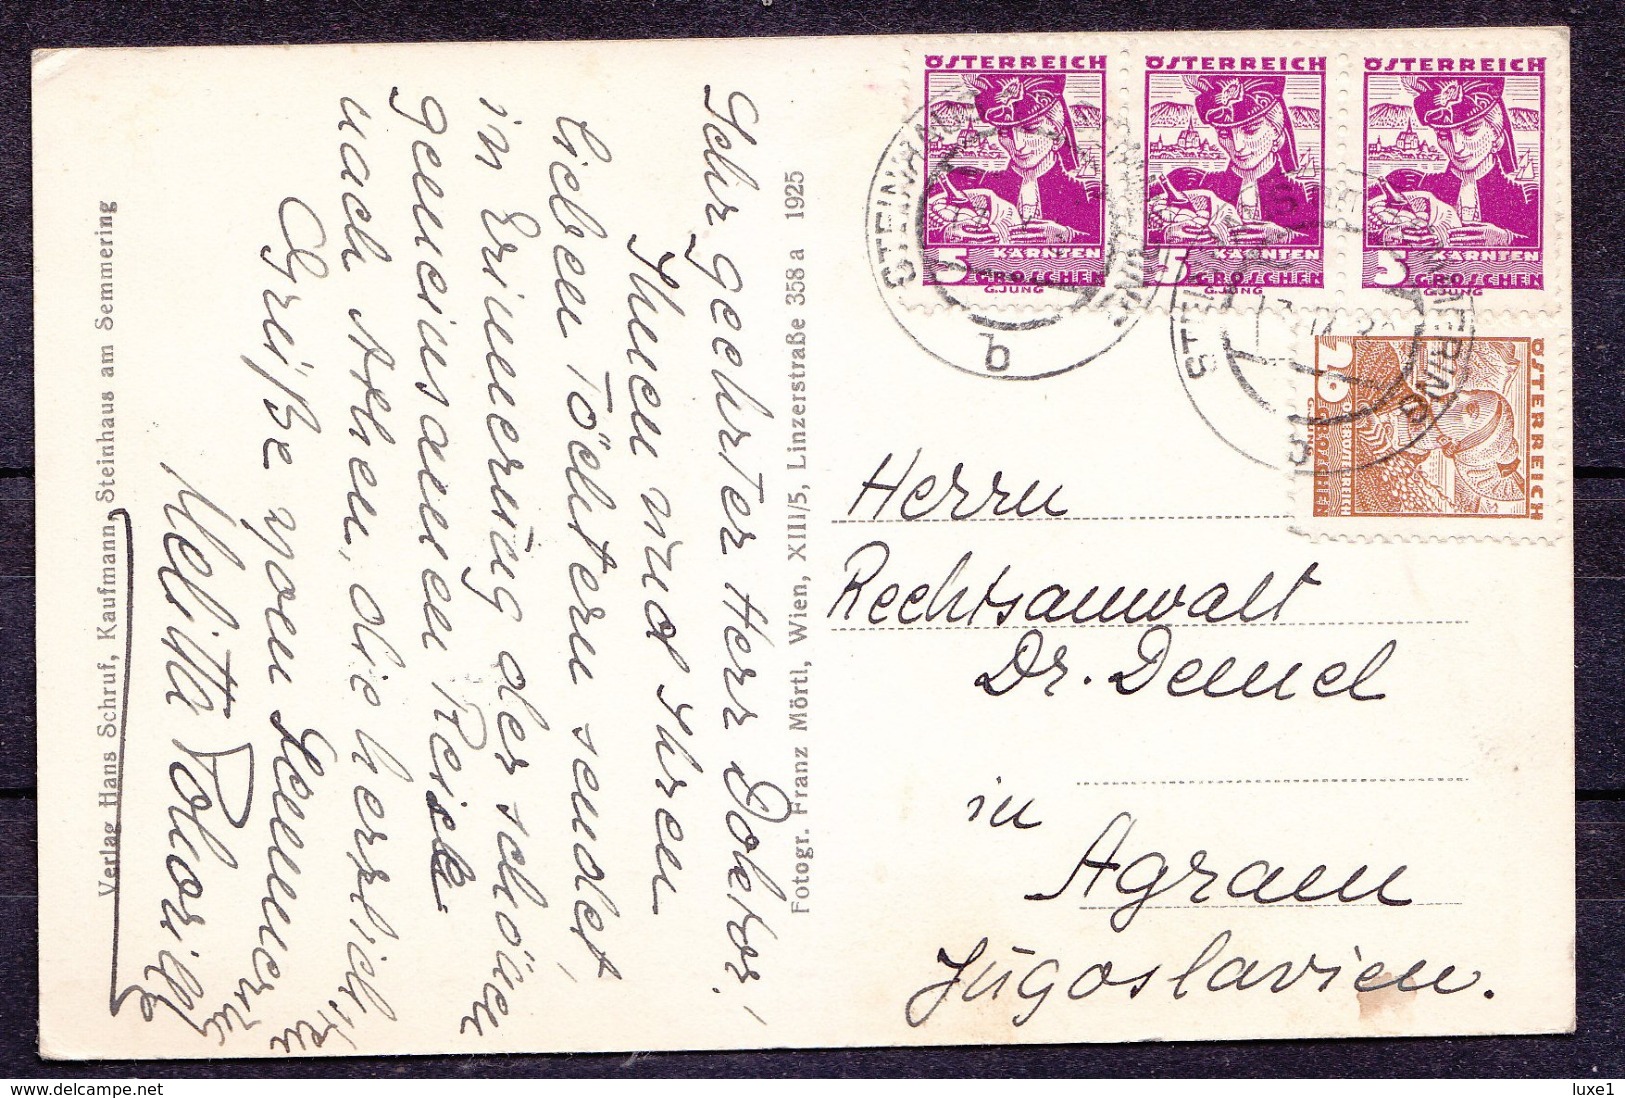 Sehr geehrter Herr Doktor!
Ihnen und Ihren
lieben Töchtern sendet,
in Erinnerung der schönen
gemeinsamen Reise
nach Athen, die herzlichsten
Grüße vom Semmering
Melitta
Verlag Hans Schruf, Kaufmann, Steinhaus am Semmering
Fotogr. Franz Mörtl, Wien, XIII/5, Linzerstraße 358 a 1925
ÖSTERREICH
KÄRNTEN
5 GROSCHEN
G.JUNG
ÖSTERREICH
KÄRNTEN
5 GROSCHEN
G.JUNG
ÖSTERREICH
KÄRNTEN
5 GROSCHEN
G.JUNG
ÖSTERREICH
GROSCHEN
b
Herrn
Rechtsanwalt
Dr. Demel
in
Agram
Jugoslavien.
delcampe.net
luxe1